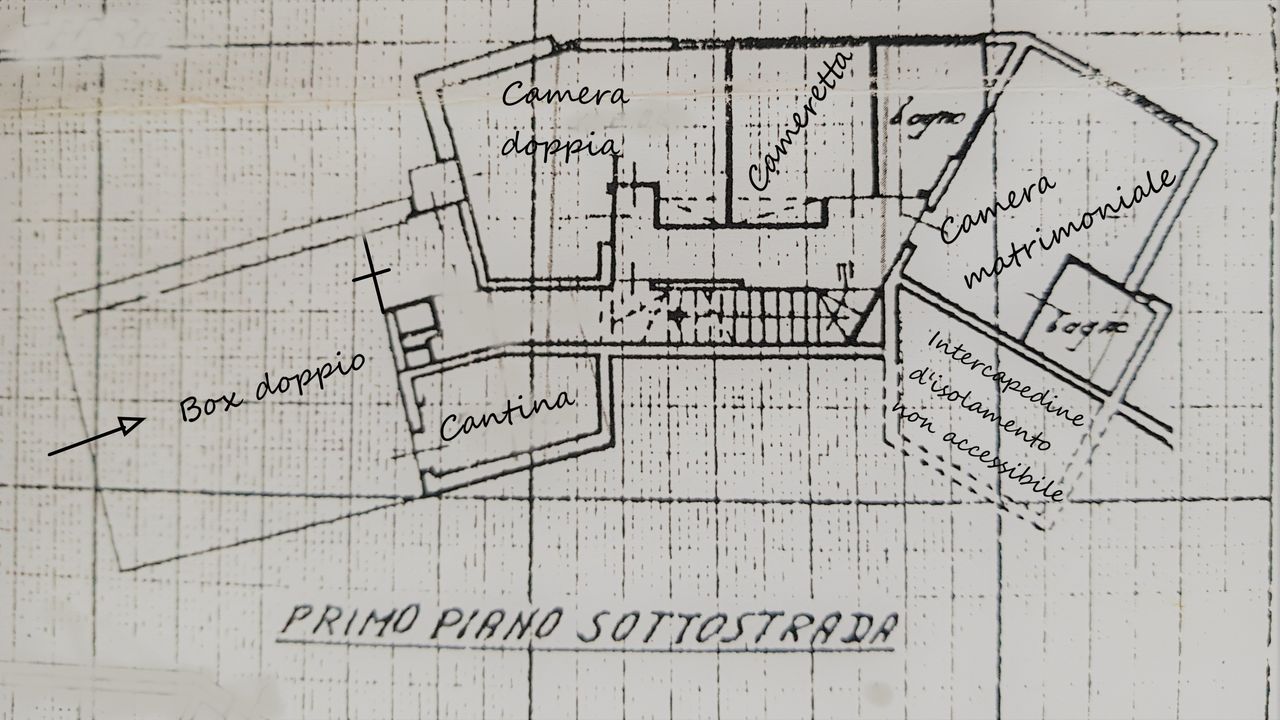 Camera
doppia
Cameretta
bagno
Camera
matrimoniale
bagno
Box doppio
Cantina
Intercapedine
d'isolamento
non accessibile
PRIMO PIANO SOTTOSTRADA